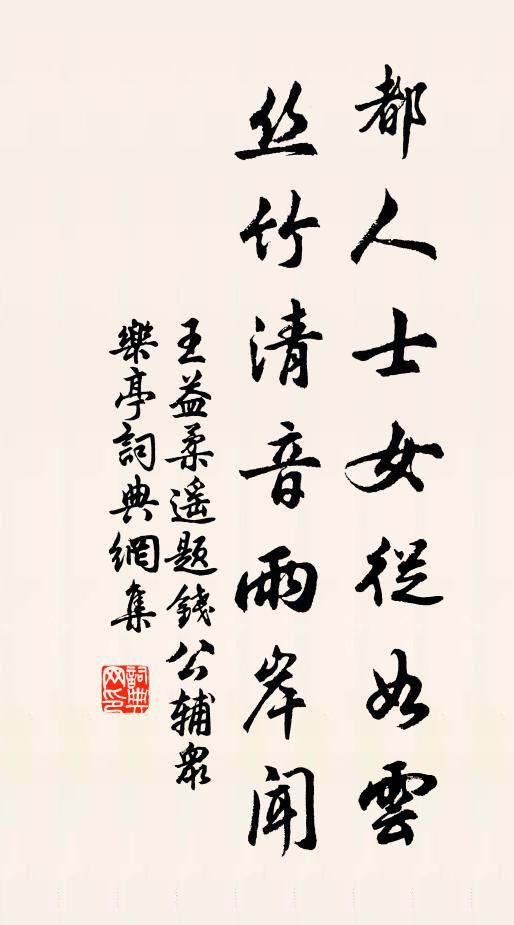 都人士女從如雲
丝竹清音兩岸聞
王益柔遥题錢公輔眾
樂亭詞典網集
詞典
网印